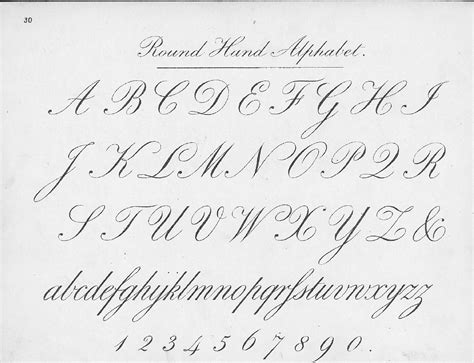 30
Round Hand Alphabet.
A B C D E F G H I
J K L M N O P Q R
S T U V W X Y Z &
abcdefghijklmnopqrſstuvwxyzz
1 2 3 4 5 6 7 8 9 0.